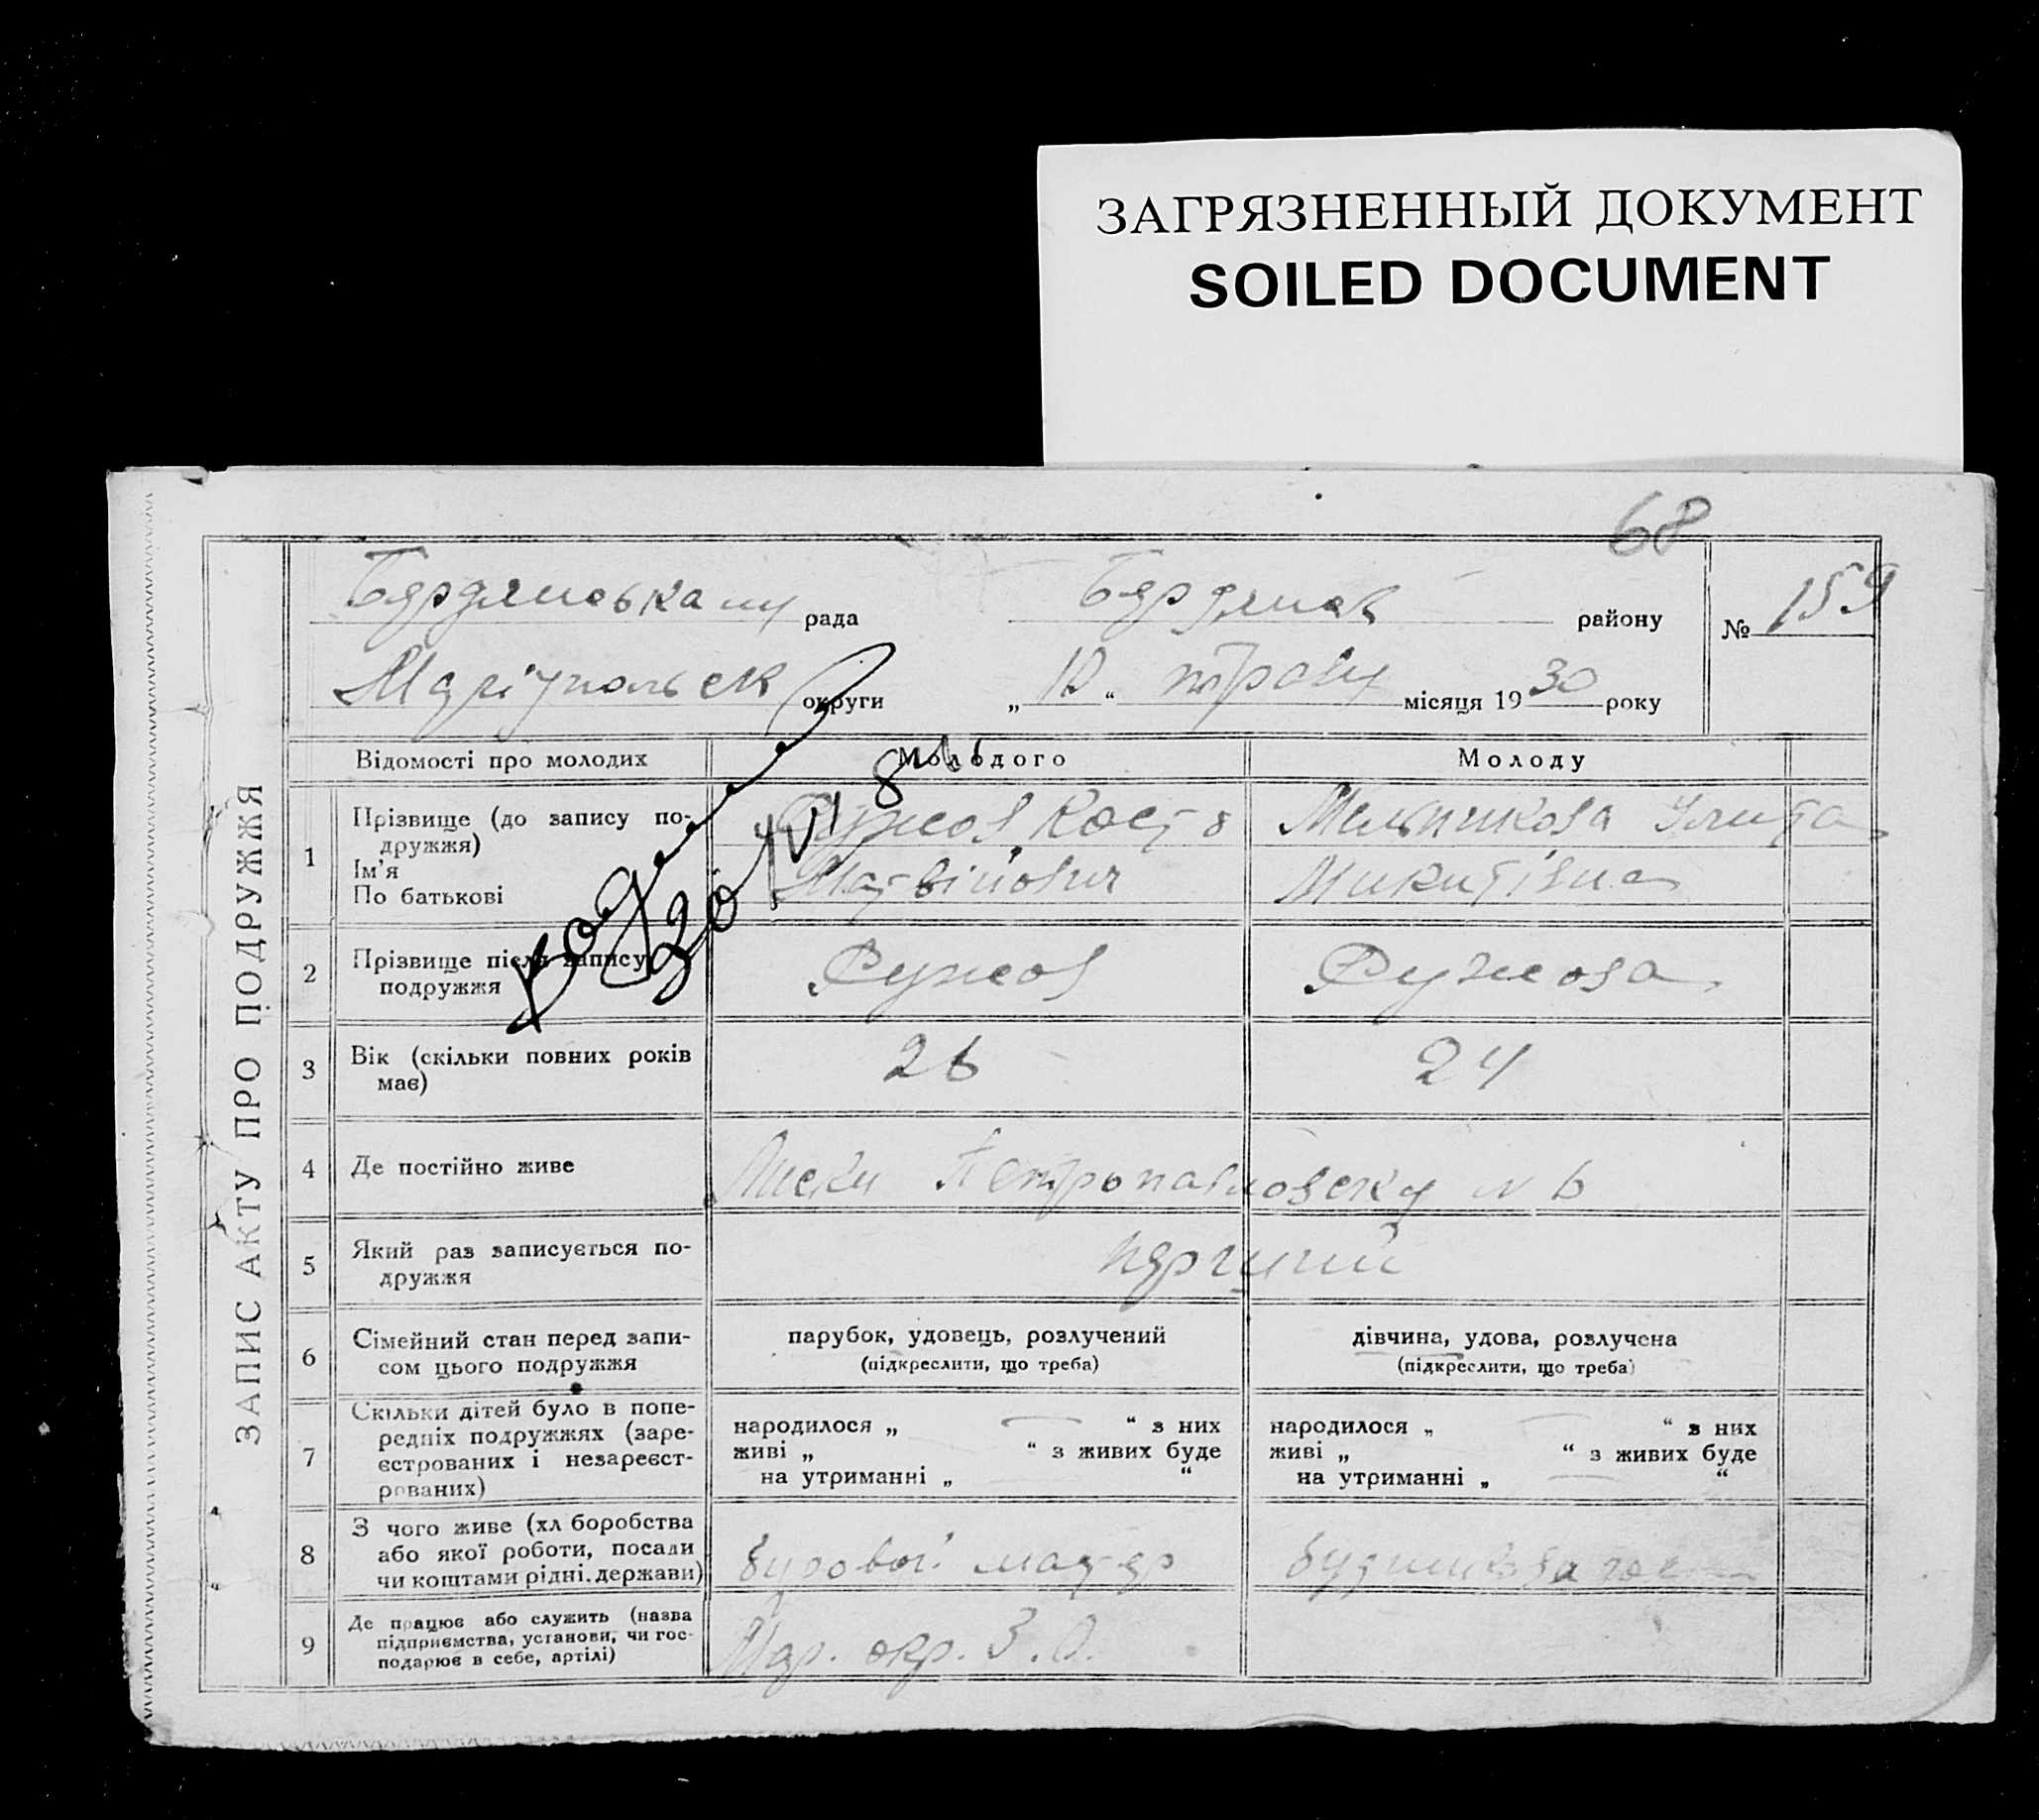 ЗАГРЯЗНЕННЫЙ ДОКУМЕНТ
SOILED DOCUMENT
68
ЗАПИС АКТУ ПРО ПОДРУЖЖЯ
рада
району
№ 159
округи „ 10 “ траву місяця 19 30 року
Відомості про молодих
Молодого
Молоду
1
Прізвище (до запису по-
дружжя)
Ім'я
По батькові
Мельникова Улита
Матвійович
Микитівна
2
Прізвище після запису
подружжя
3
Вік (скільки повних років
має)
26
24
4
Де постійно живе
Петропавловску № 6
5
Який раз записується по-
дружжя
перший
6
Сімейний стан перед запи-
сом цього подружжя
парубок, удовець, розлучений
(підкреслити, що треба)
дівчина, удова, розлучена
(підкреслити, що треба)
7
Скільки дітей було в попе-
редніх подружжях (заре-
єстрованих і незареєст-
рованих)
народилося „ “ з них
живі „ “ з живих буде
на утриманні „ “
народилося „ “ з них
живі „ “ з живих буде
на утриманні „ “
8
З чого живе (хл боробства
або якої роботи, посади
чи коштами рідні.держави)
9
Де працює або служить (назва
підприємства, установи, чи гос-
подарює в себе, артілі)
окр. З.О.